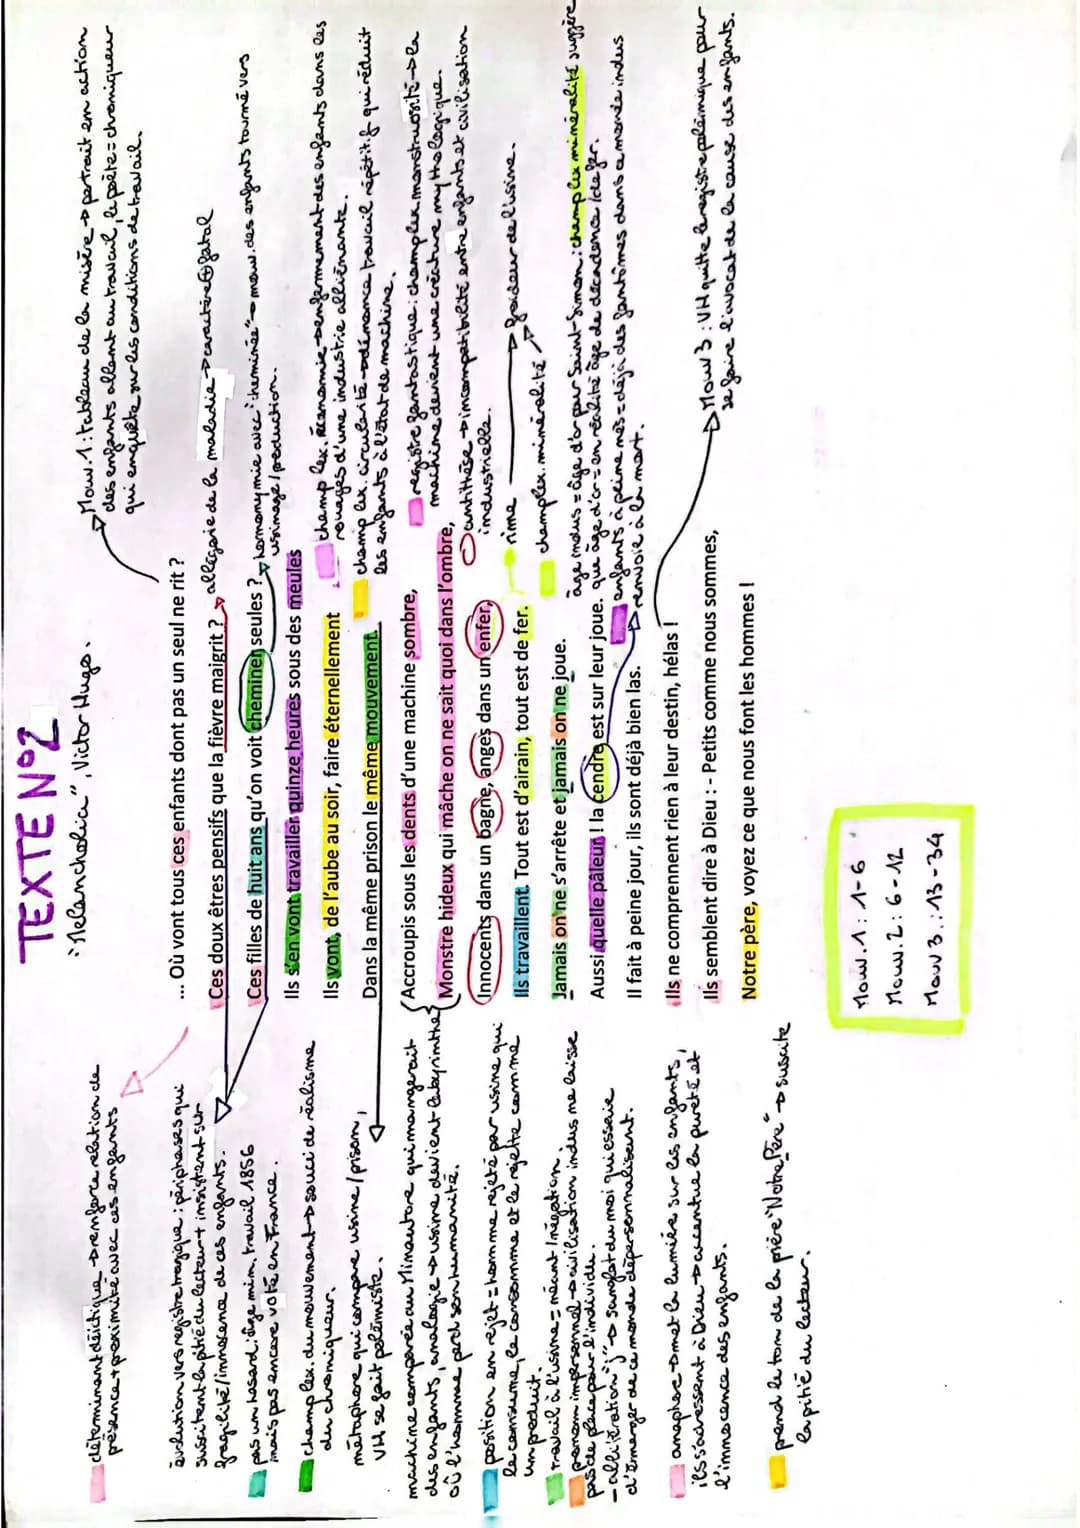 TEXTE N°2
"Melancholia", Victor Hugo.
Mouv. 1 : tableau de la misère → portrait en action
des enfants allant au travail, le poète = chroniqueur
qui enquête sur les conditions de travail.
... Où vont tous ces enfants dont pas un seul ne rit ?
Ces doux êtres pensifs que la fièvre maigrit ?
Ces filles de huit ans qu'on voit cheminer seules ?
Ils s'en vont travailler quinze heures sous des meules
Ils vont, de l'aube au soir, faire éternellement
Dans la même prison le même mouvement.
Accroupis sous les dents d'une machine sombre,
Monstre hideux qui mâche on ne sait quoi dans l'ombre,
Innocents dans un bagne, anges dans un enfer,
Ils travaillent. Tout est d'airain, tout est de fer.
Jamais on ne s'arrête et jamais on ne joue.
Aussi quelle pâleur ! la cendre est sur leur joue.
Il fait à peine jour, ils sont déjà bien las.
Ils ne comprennent rien à leur destin, hélas !
Ils semblent dire à Dieu : - Petits comme nous sommes,
Notre père, voyez ce que nous font les hommes !
allégorie de la maladie → caractère ⊕ fatal
homonymie avec "cheminée" → mouv. des enfants tourné vers
usinage/production.
champ lex. → enfermement des enfants dans les
rouages d'une industrie alliénante.
champ lex. circularité → dénonce travail répétitif qui réduit
les enfants à l'état de machine.
registre fantastique : champ lex monstruosité → la
machine devient une créature mythologique.
antithèse → incompatibilité entre enfants et civilisation
industrielle.
rime → froideur de l'usine.
champ lex. minéralité
âge indus = âge d'or pour Saint-Simon : champ lex minéralité suggère
que âge d'or = en réalité âge de décadence/de fer.
enfants à peine nés = déjà des fantômes dans ce monde indus
renvoie à la mort.
Mouv 3 : VH quitte le registre polémique pour
se faire l'avocat de la cause des enfants.
déterminant déictique → renforce relation de
présence + proximité avec ces enfants
évolution vers registre tragique : périphrases qui
suscitent la pitié du lecteur + insistent sur
fragilité/innocence de ces enfants.
pas un hasard : âge min. travail 1856
mais pas encore voté en France.
champ lex. du mouvement → souci de réalisme
du chroniqueur.
métaphore qui compare usine/prison,
VH se fait polémiste.
machine comparée au Minautore qui mangerait
des enfants, analogie → usine devient labyrinthe
où l'homme perd son humanité.
position en rejet = homme rejeté par usine qui
le consume, le consomme et le rejette comme
un produit.
travail à l'usine = néant/négation.
pronom impersonnel → civilisation indus ne laisse
pas de place pour l'individu.
- allitération "j" → sursaut du moi qui essaie
d'émerger de ce monde dépersonnalisant.
anaphore → met la lumière sur les enfants,
ils s'adressent à Dieu → accentue la pureté et
l'innocence des enfants.
prend le ton de la prière "Notre Père" → suscite
la pitié du lecteur.
Mouv. 1 : 1-6
Mouv. 2 : 6-12
Mouv 3. : 13-34